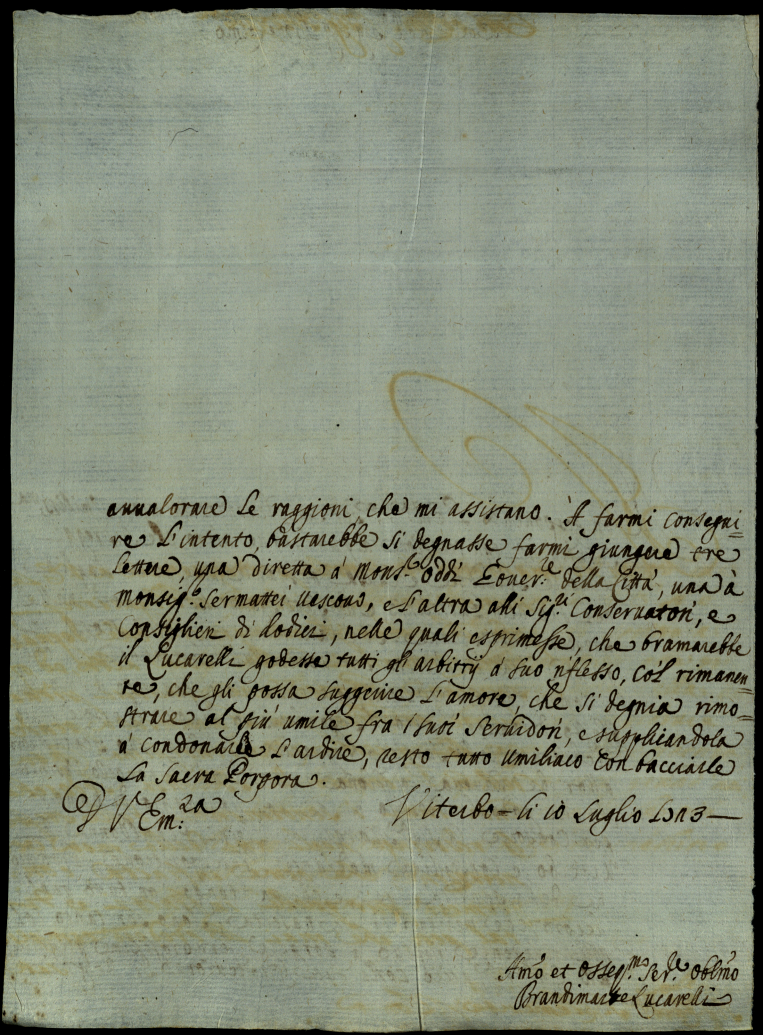 auualorare le raggioni, che mi assistano. À farmi consegui=
re l'intento, bastarebbe si degnasse farmi giungere tre
lettere, una diretta à Mons.r Oddi Gouer.re della Città, una à
Monsig.r Sermattei Uescouo, e l'altra alli Sig.ri Conseruatori, e
Consiglieri di dodici, nelle quali esprimesse, che bramarebbe
il Lucarelli godesse tutti gl'arbitrij à suo riflesso, col rimanen=
te, che gli possa suggerire l'amore, che si degnia rimo=
strare al più umile fra i suoi seruidori, e supplicandola
à condonare l'ardire, resto tutto umiliato con bacciarle
la sacra Porpora.
D V Em:za
Viterbo = li 10 Luglio
Aff.mo et Osseq.mo Ser.re Obl.mo
Brandimarte Lucarelli